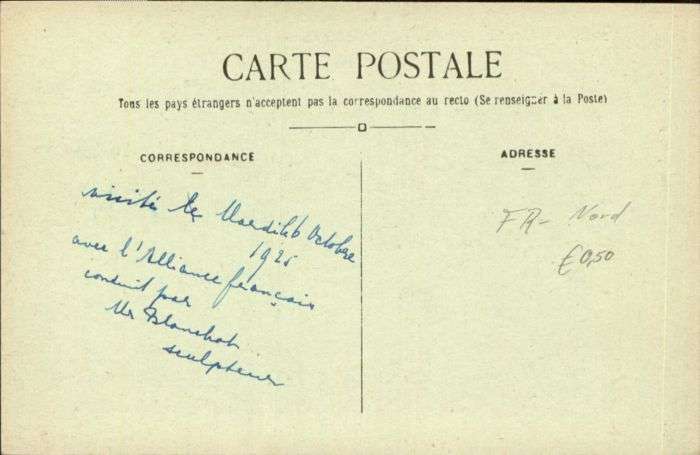 CARTE POSTALE
Tous les pays étrangers n'acceptent pas la correspondance au recto (Se renseigner à la Poste)
CORRESPONDANCE
ADRESSE
visité le Mardi Octobre
avec l'Alliance français
conduit par
Mr Blanchot
sculpteur
FR - Nord
€0,50